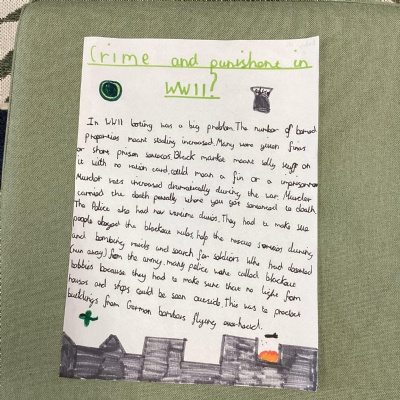 Crime and punishone in
WWII?
In WWII looting was a big problem. The number of bomed
properties meant stealing increased. Many were given fines
or short prison sentences. Black market meant illy stuff on
it with no ration card, could mean a fin or a imprisonmen
Murder rates increased dramatically during the war. Murder
carried the death penalty where you got sentenced to death.
The Police also had new wartime duties. They had to make sure
people obeyed the blackout rules, help the rescue services during
and bombing raids and search for soldiers who had deserted
(run away) from the army. many police were called blackout
bobbies because they had to make sure that no light from
houses and shops could be seen outside. This was to protect
buildings from German bombers flying overhead.